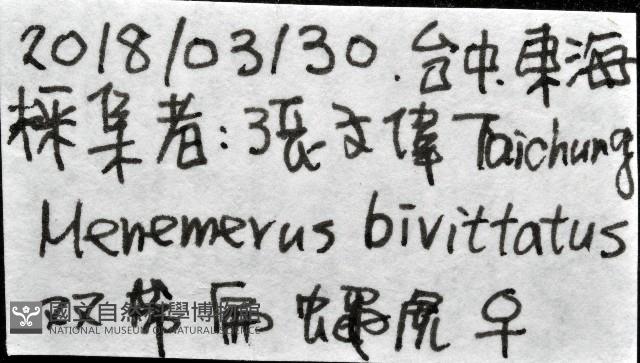 2018/03/30.台中.東海
採集者:張文偉 Taichung
Menemerus bivittatus
双帶扁蠅虎 ♀
國立自然科學博物館
NATIONAL MUSEUM OF NATURAL SCIENCE